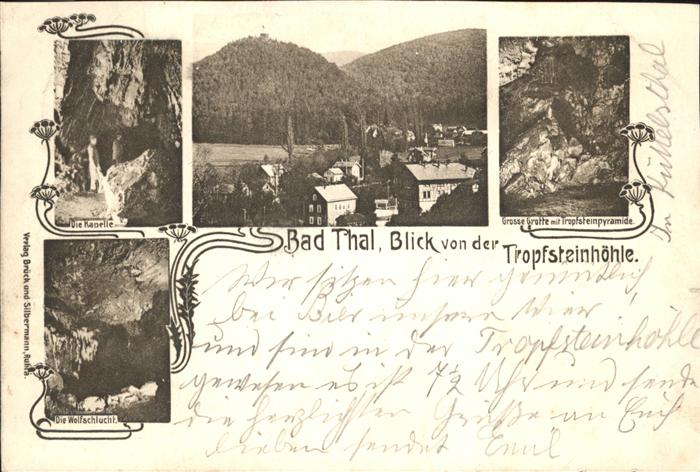 Die Kapelle.
Grosse Grotte mit Tropfsteinpyramide.
Bad Thal, Blick von der
Tropfsteinhöhle.
Die Wolfschlucht.
Verlag Brück und Silbermann, Ruhla.
Wir sitzen hier gemütlich
bei Bier unsere Vier
und sind in der Tropfsteinhöhle
gewesen es ist 7½ Uhr und sende
die herzlichsten Grüße an Euch
lieben sendet Emil